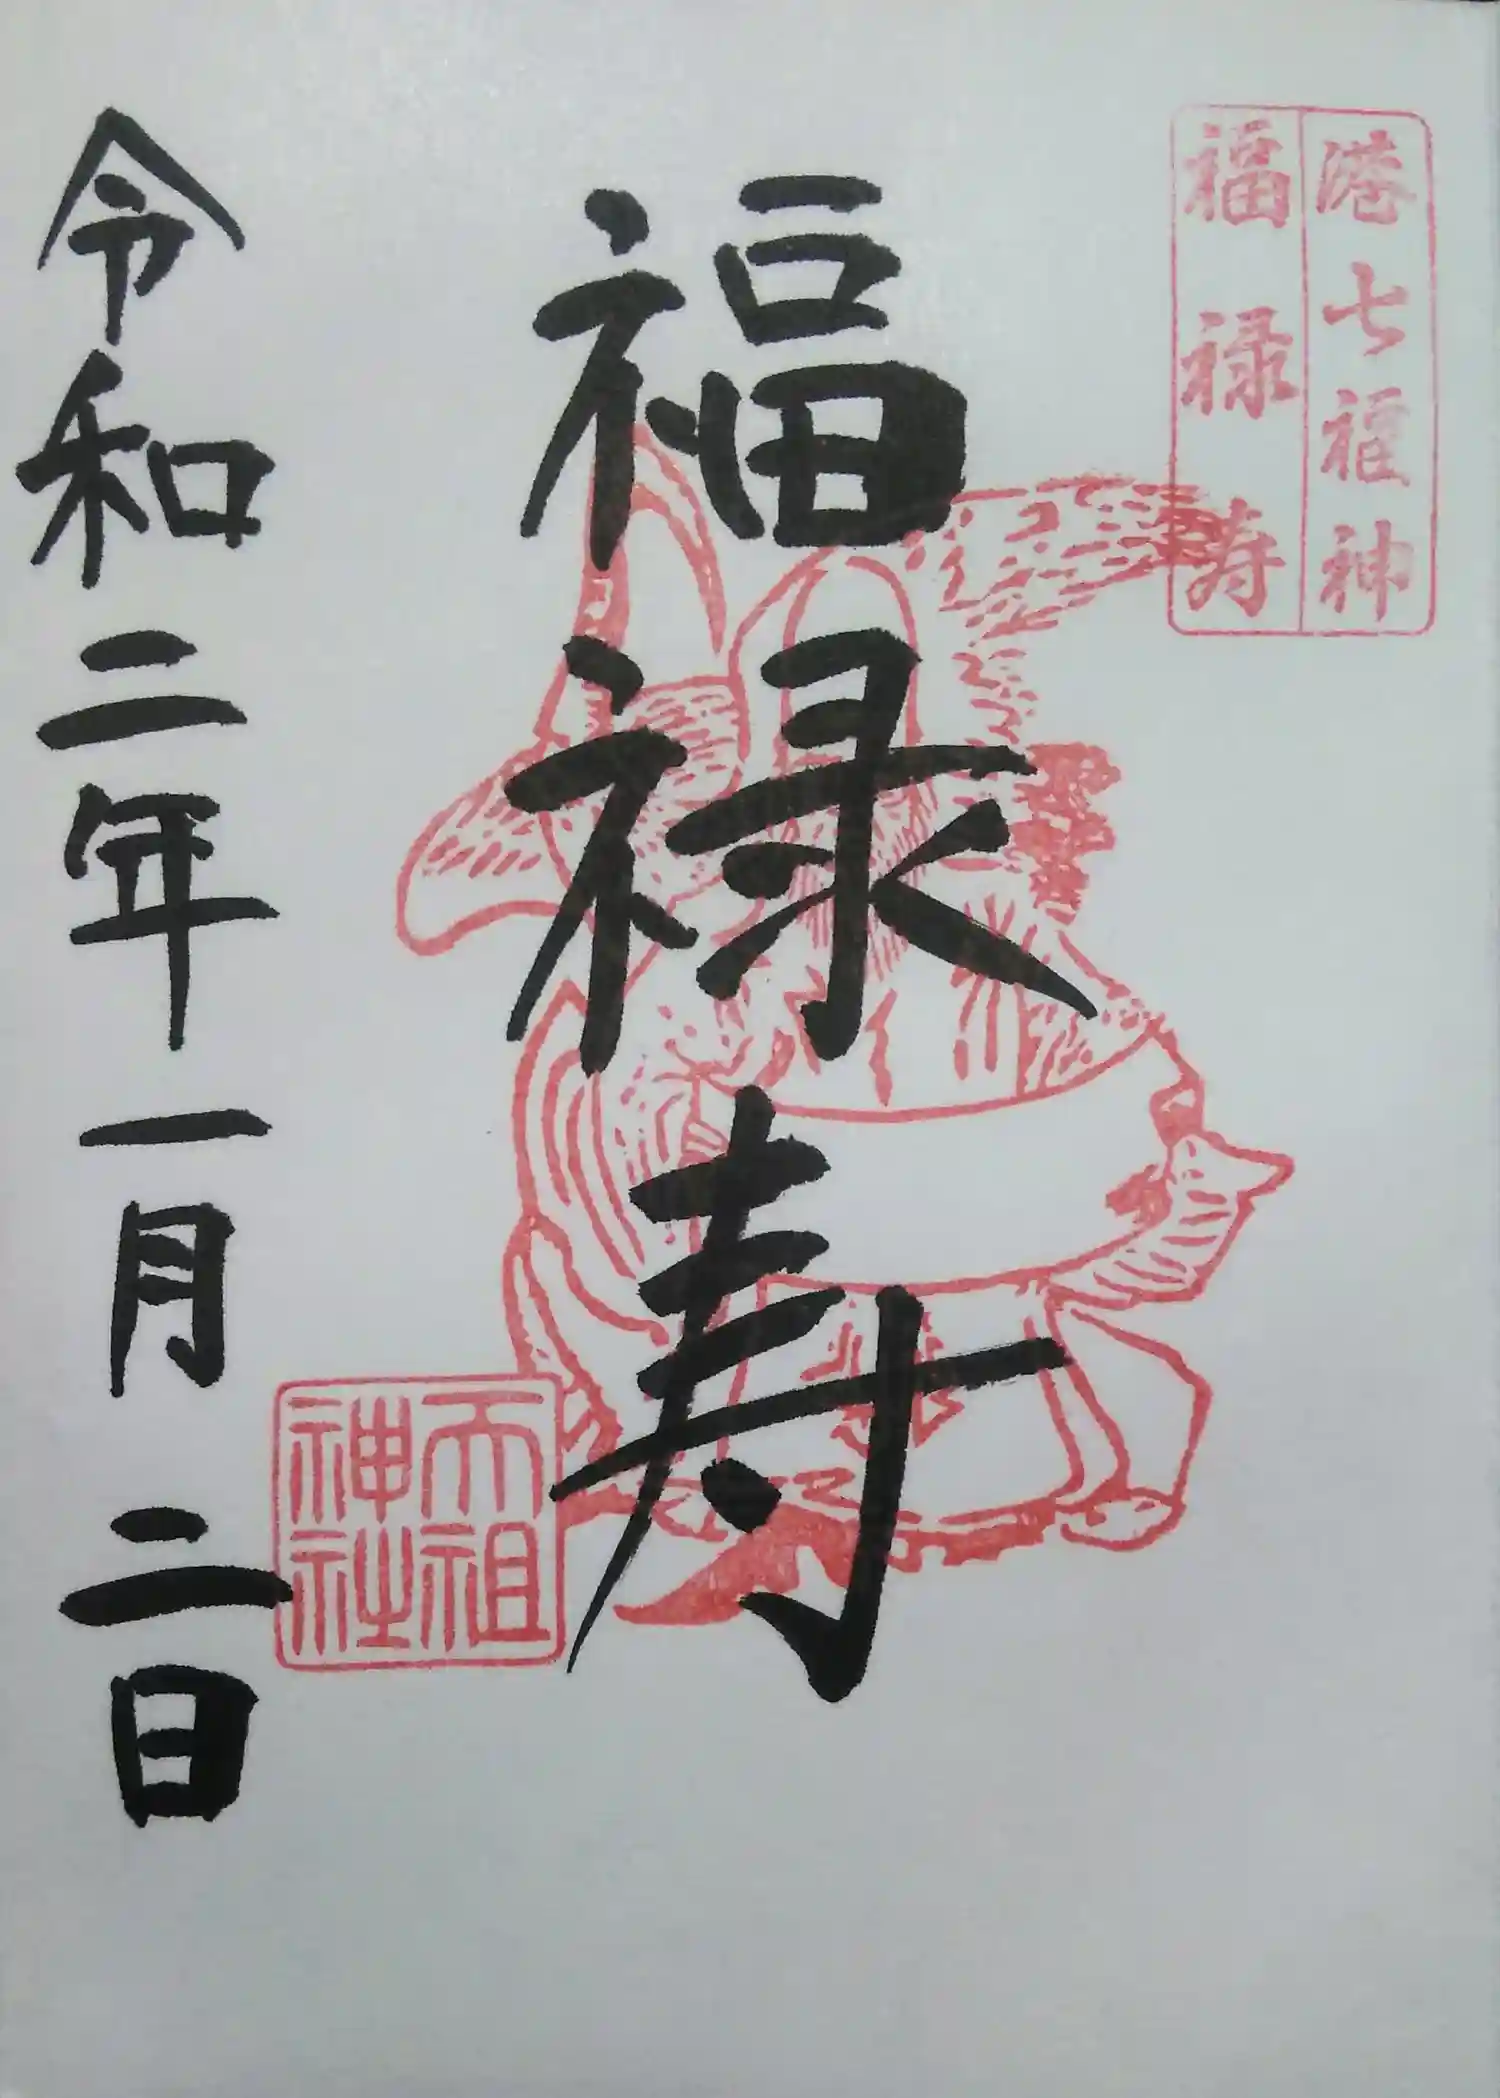 港七福神
福禄寿
福禄寿
天祖
神社
令和二年一月二日